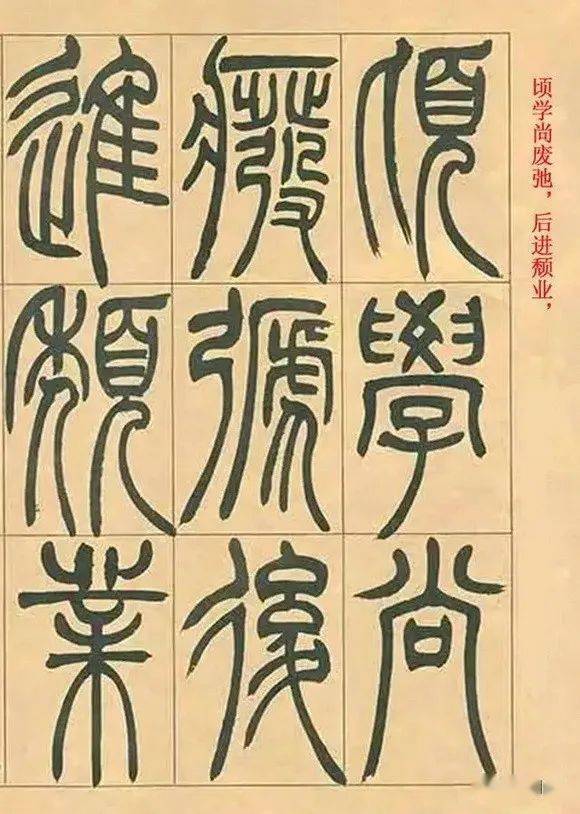 顷学尚废弛，后进颓业，
頃學尚
廢弛後
進頹業